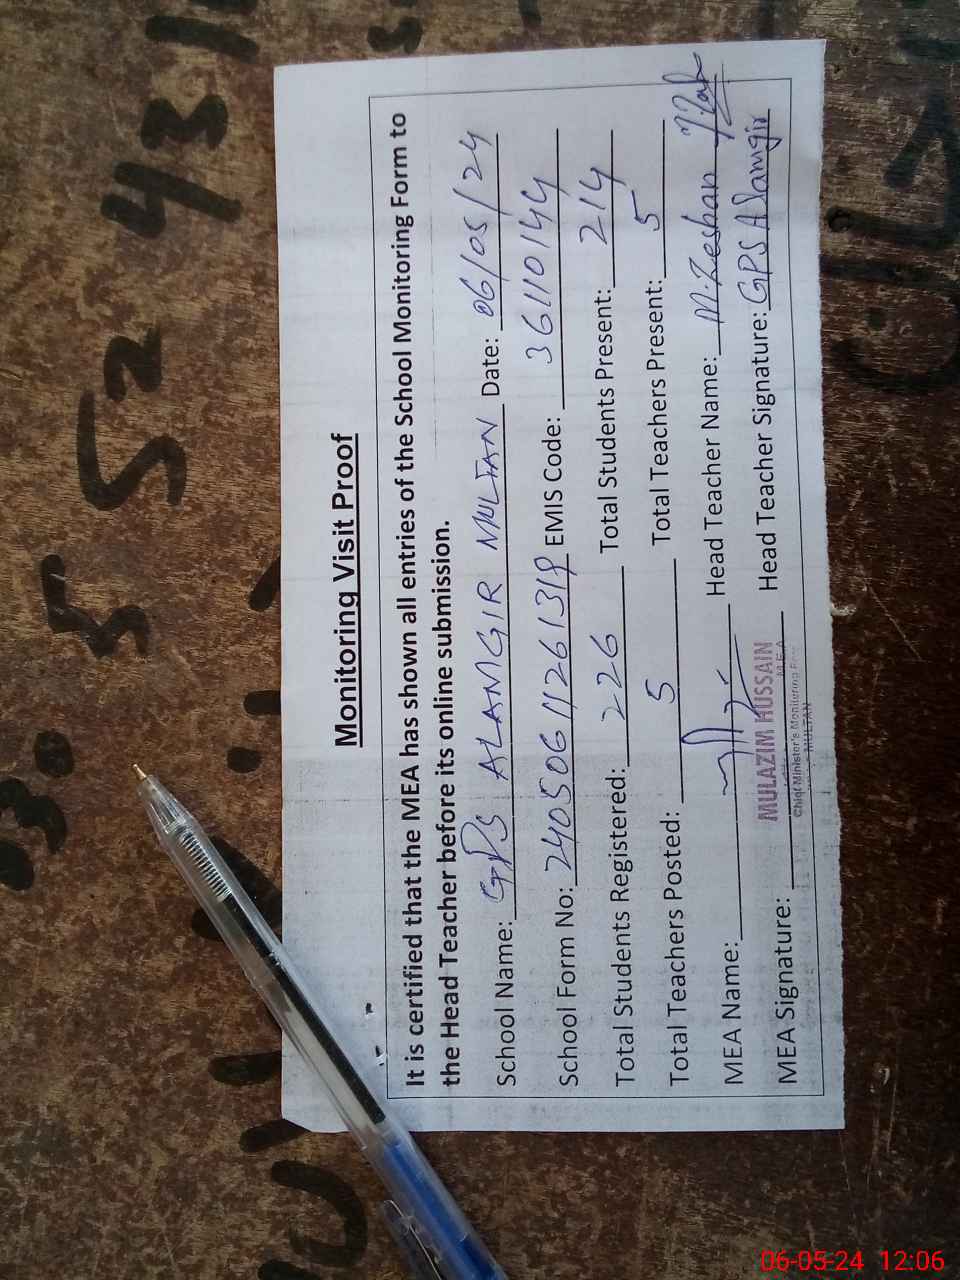 Monitoring Visit Proof
It is certified that the MEA has shown all entries of the School Monitoring Form to
the Head Teacher before its online submission.
School Name: GPS ALAMGIR MULTAN Date: 06/05/24
School Form No: 24050611261319 EMIS Code: 36110144
Total Students Registered: 226 Total Students Present: 214
Total Teachers Posted: 5 Total Teachers Present: 5
MEA Name: Head Teacher Name: M.Zeshan
MEA Signature: Head Teacher Signature: GPS Alamgir
MULAZIM HUSSAIN
M.E.A
Chief Minister's Monitoring Force
MULTAN
52
43
06-05-24 12:06